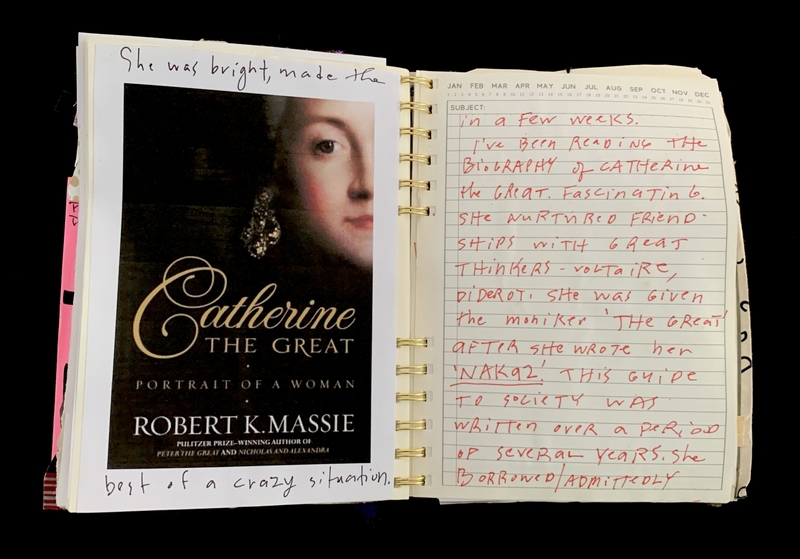 She was bright, made the
Catherine
THE GREAT
PORTRAIT OF A WOMAN
ROBERT K. MASSIE
PULITZER PRIZE–WINNING AUTHOR OF
PETER THE GREAT AND NICHOLAS AND ALEXANDRA
best of a crazy situation.
JAN FEB MAR APR MAY JUN JUL AUG SEP OCT NOV DEC
SUBJECT:
in a few weeks.
I've been reading the
Biography of Catherine
the Great. Fascinating.
She nurtured friend-
ships with great
thinkers - Voltaire,
Diderot. She was given
the moniker 'The Great'
after she wrote her
'Nakaz'. This guide
to society was
written over a period
of several years. She
borrowed/admittedly